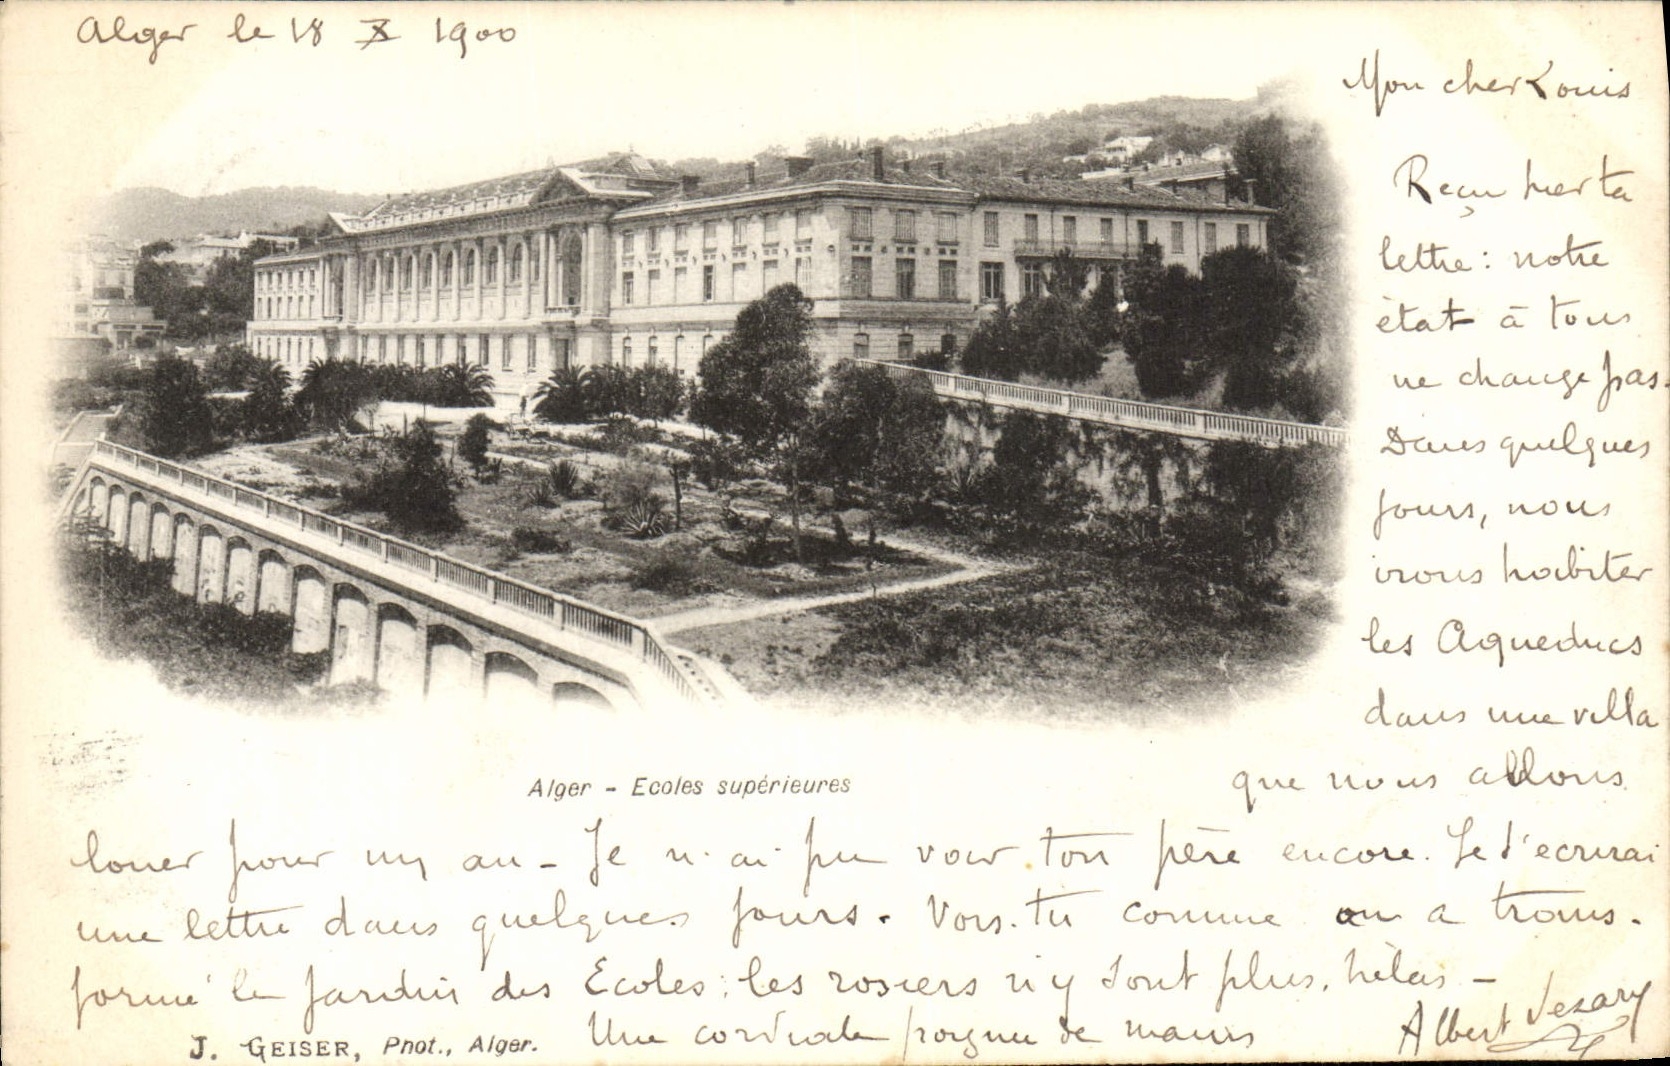 Alger le 18 X 1900
Mon cher Louis
Reçu hier ta
lettre : notre
état à tous
ne change pas.
Dans quelques
jours, nous
irons habiter
les Aqueducs
dans une villa
que nous allons
louer pour un an - Je n'ai pu voir ton père encore. Je t'écrirai
une lettre dans quelques jours. Vois-tu comme on a trans-
formé le Jardin des Ecoles ; les rosiers n'y sont plus, hélas -
Une cordiale poignée de mains
Albert
Alger - Ecoles supérieures
J. GEISER, Phot., Alger.